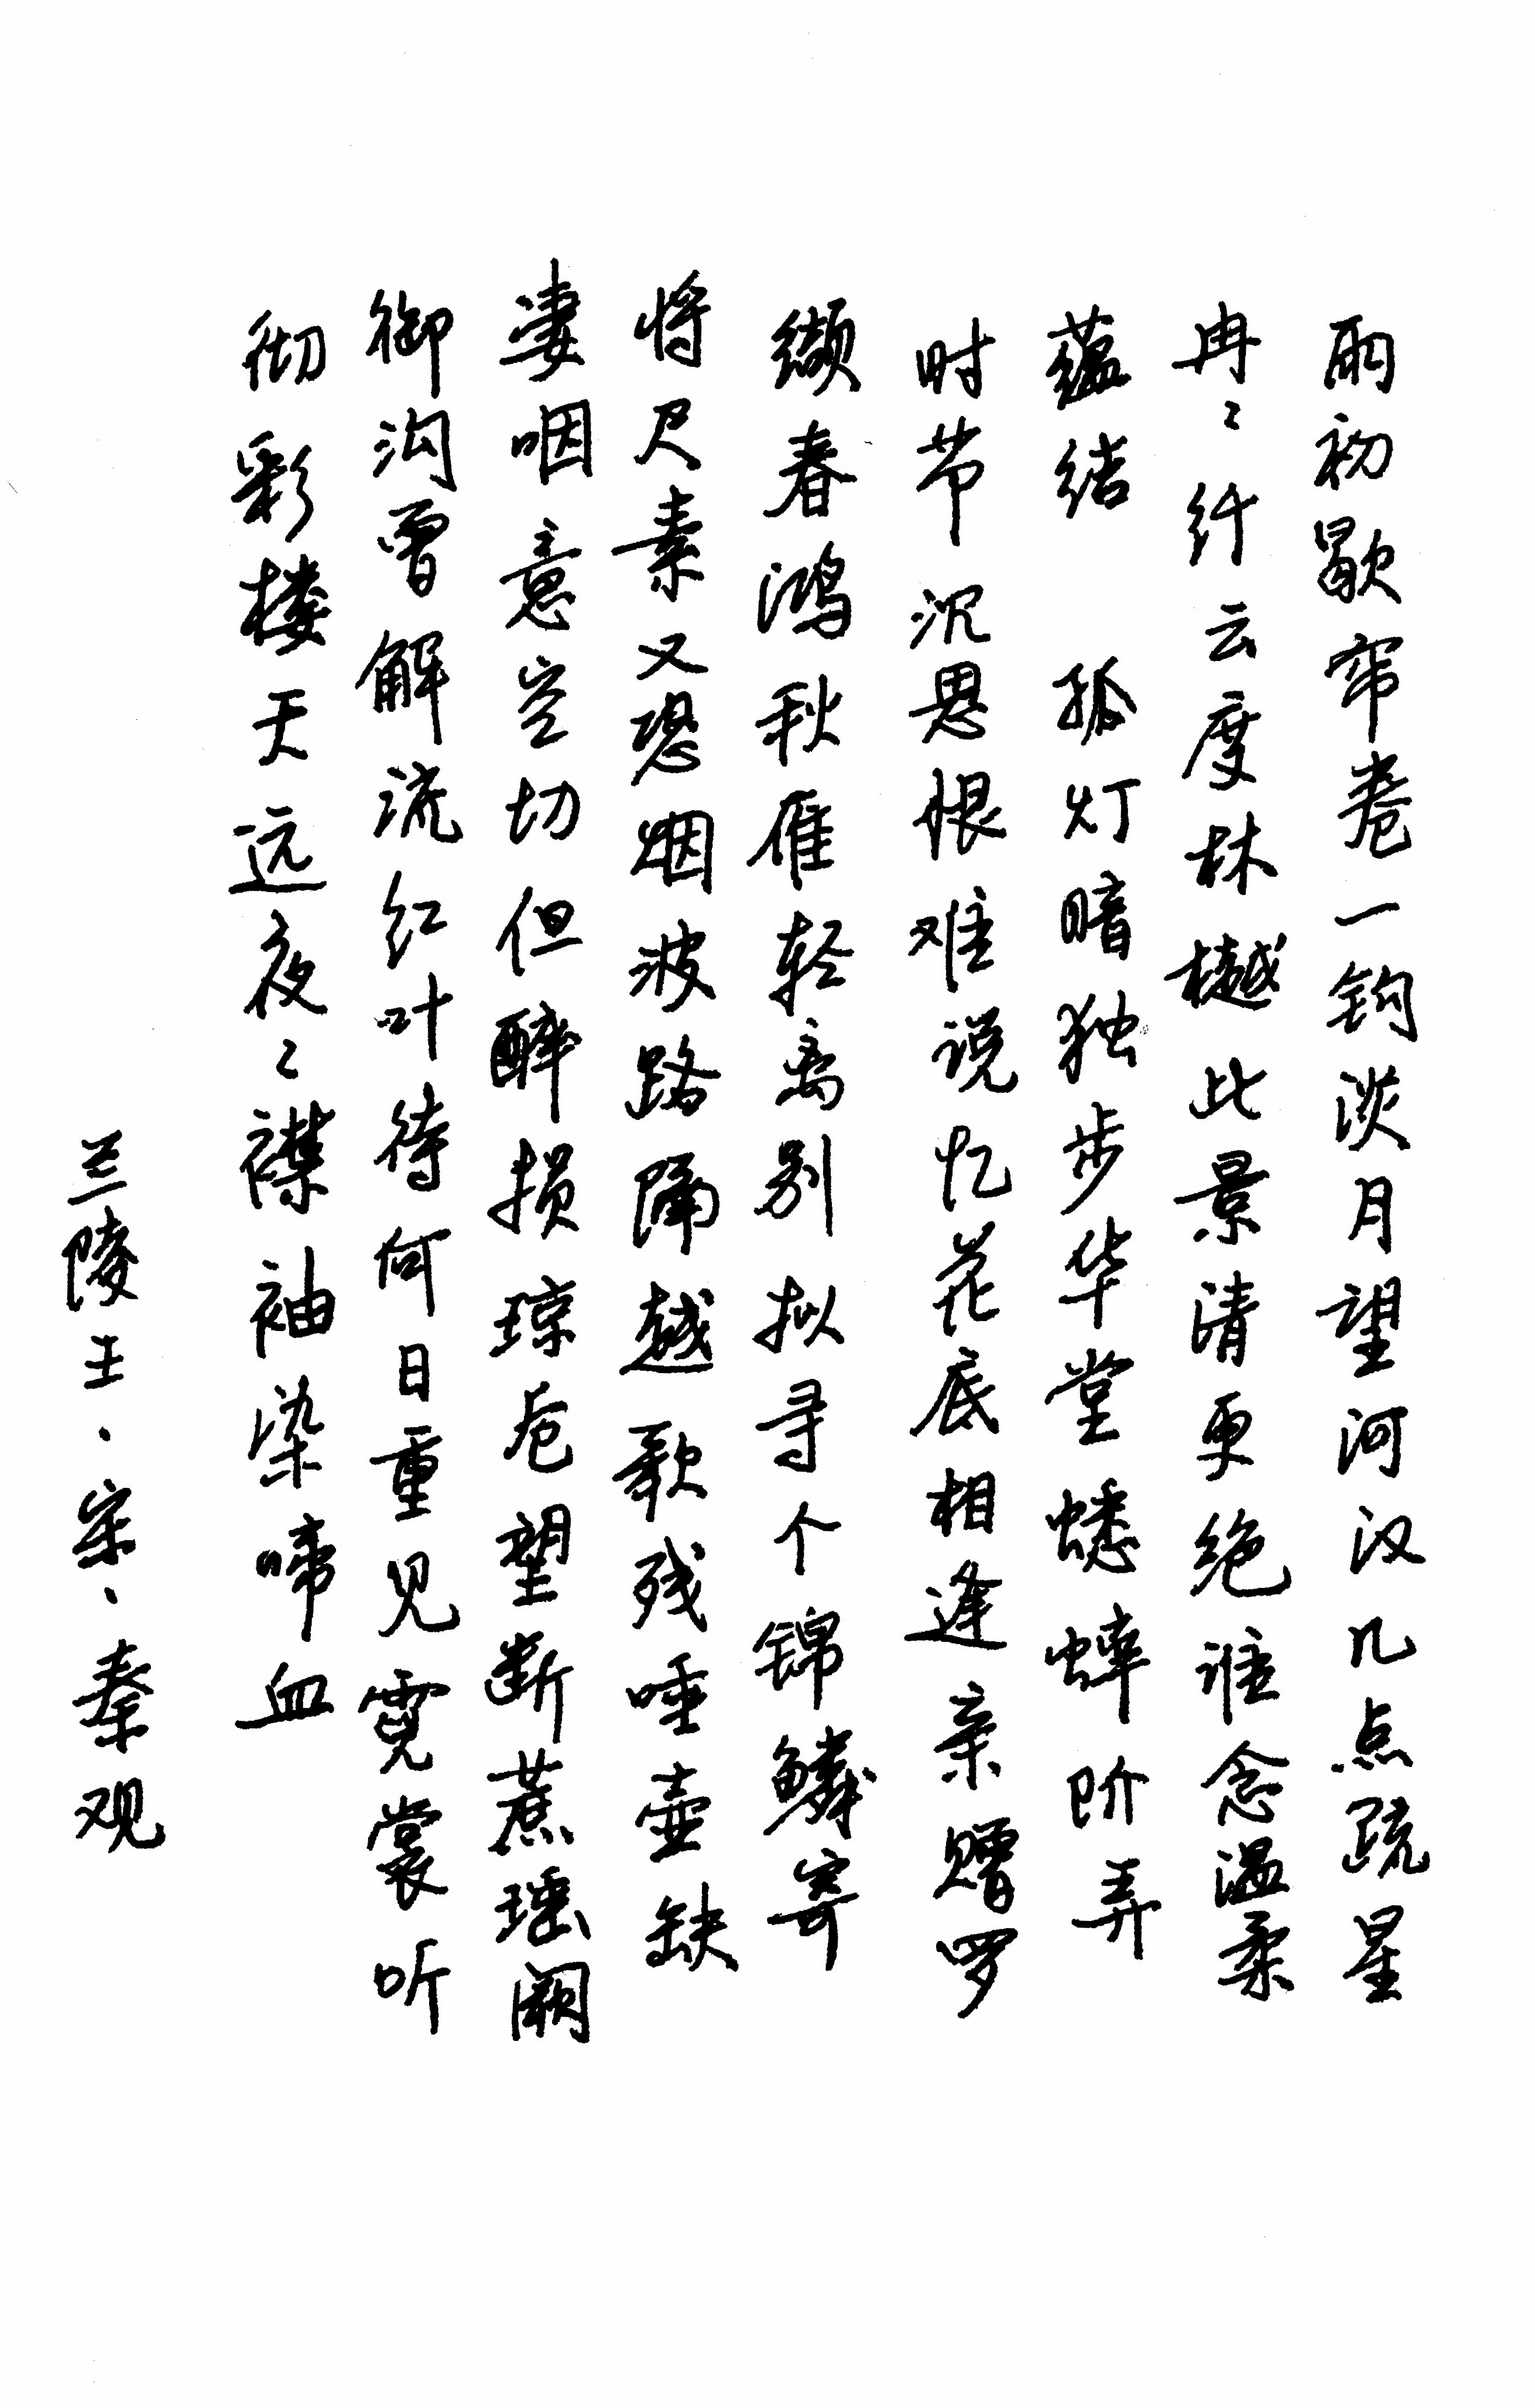 雨初歇帘卷一钩淡月望河汉几点疏星
冉〻纤云度林樾此景清更绝谁念温柔
蕴结 孤灯暗独步华堂蟋蟀阶弄
时节沉思恨难说忆花底相逢亲赠罗
缬春鸿秋雁轻离别拟寻个锦鳞寄
将尺素又恐烟波路隔越歌残唾壶缺
凄咽意空切但醉损琼卮望断瑶阙
御沟曾解流红叶待何日重见霓裳听
彻彩楼天远夜〻襟袖染啼血
兰陵王·宋·秦观